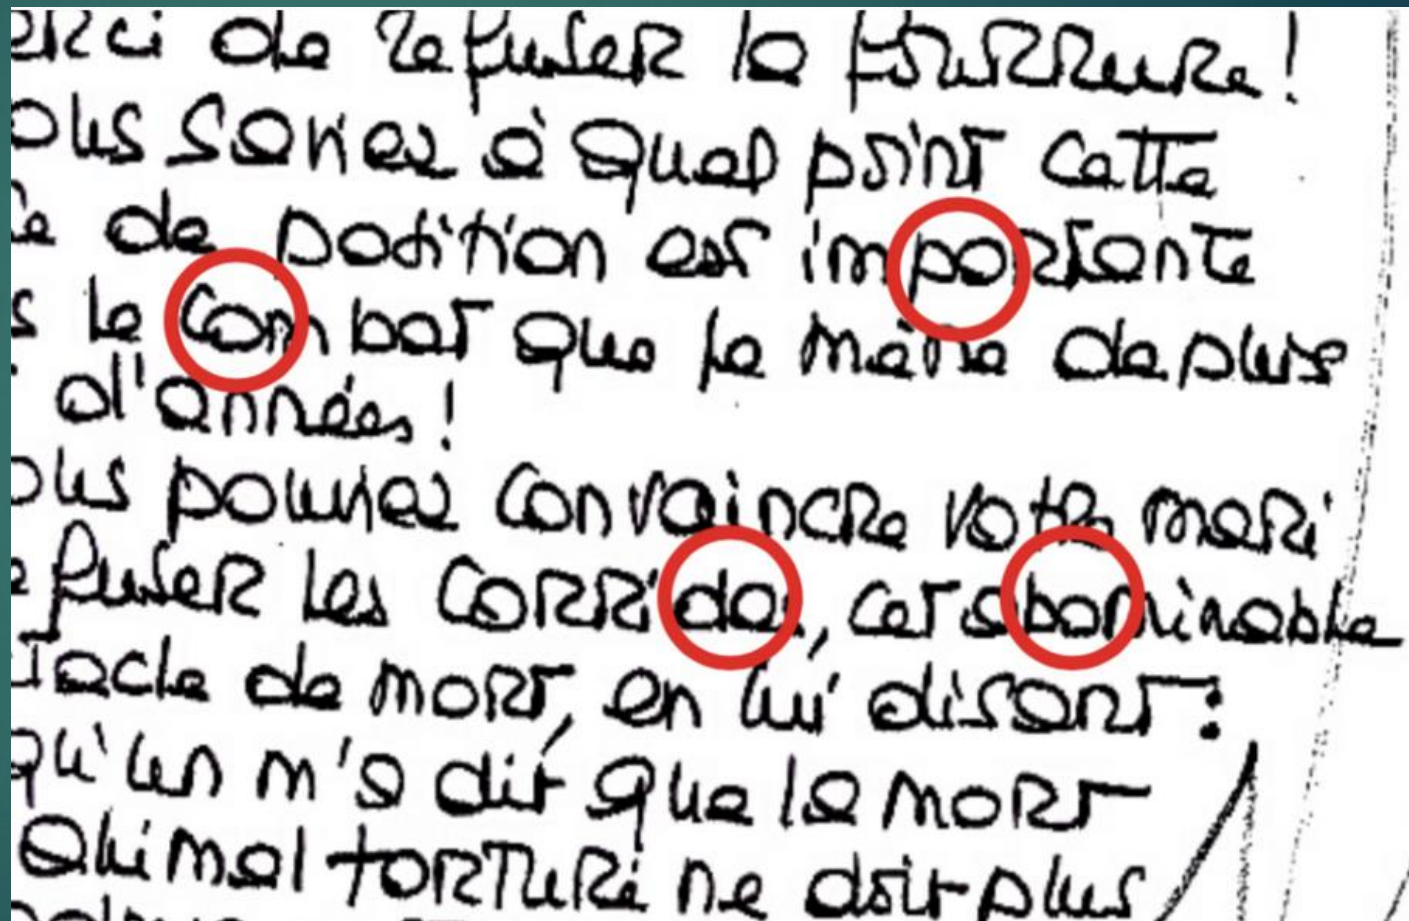 erci de refuser la fourrure !
ous saviez à quel point cette
e de position est importante
s le combat que je mène depuis
d'années !
ous pouviez convaincre votre mari
efuser les corridas, cet abominable
tacle de mort, en lui disant :
qu'un m'a dit que la mort
animal torturé ne doit plus